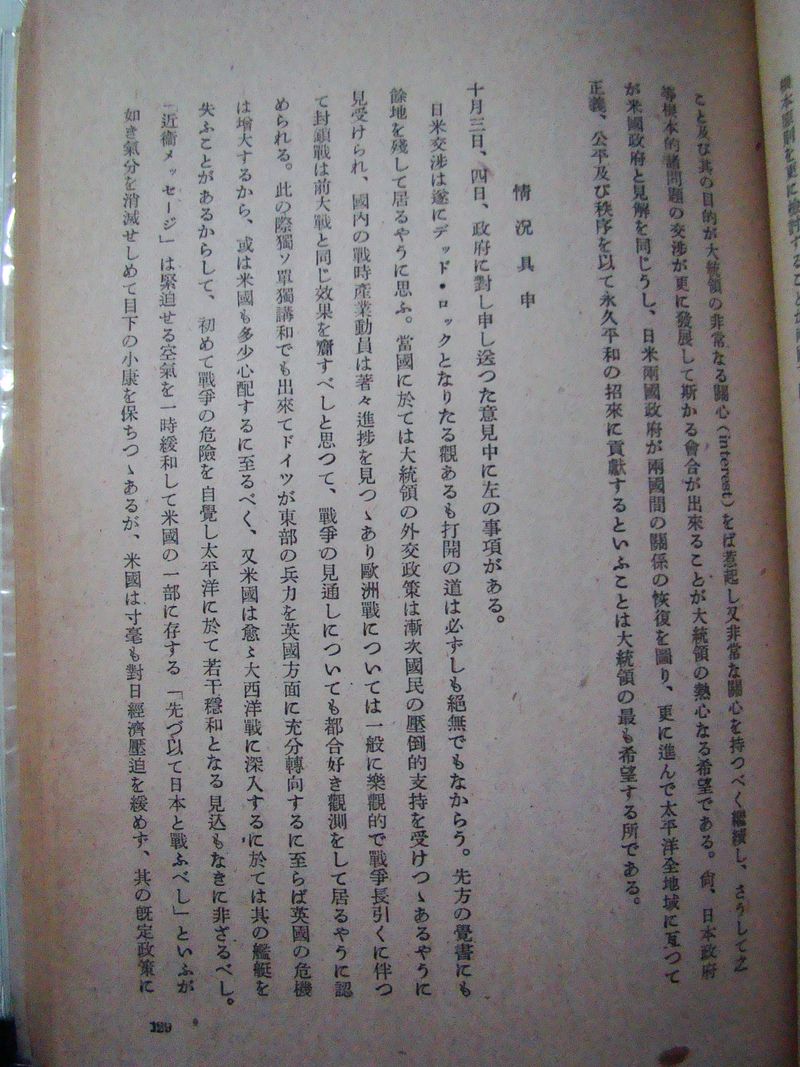 こと及び其の目的が大統領の非常なる關心（interest）をば惹起し又非常な關心を持つべく繼續し、さうして之
等根本的諸問題の交渉が更に發展して斯かる會合が出來ることが大統領の熱心なる希望である。尙、日本政府
が米國政府と見解を同じうし、日米兩國政府が兩國間の關係の恢復を圖り、更に進んで太平洋全地域に亙つて
正義、公平及び秩序を以て永久平和の招來に貢獻するといふことは大統領の最も希望する所である。
情況具申
十月三日、四日、政府に對し申し送つた意見中に左の事項がある。
日米交渉は遂にデッド・ロックとなりたる觀あるも打開の道は必ずしも絕無でもなからう。先方の覺書にも
餘地を殘して居るやうに思ふ。當國に於ては大統領の外交政策は漸次國民の壓倒的支持を受けつゝあるやうに
見受けられ、國内の戰時產業動員は著々進捗を見つゝあり歐洲戰については一般に樂觀的で戰爭長引くに伴つ
て封鎖戰は前大戰と同じ效果を齎すべしと思つて、戰爭の見通しについても都合好き觀測をして居るやうに認
められる。此の際獨ソ單獨講和でも出來てドイツが東部の兵力を英國方面に充分轉向するに至らば英國の危機
は增大するから、或は米國も多少心配するに至るべく、又米國は愈〻大西洋戰に深入するに於ては其の艦艇を
失ふことがあるからして、初めて戰爭の危險を自覺し太平洋に於て若干穩和となる見込もなきに非ざるべし。
「近衞メッセージ」は緊迫せる空氣を一時緩和して米國の一部に存する「先づ以て日本と戰ふべし」といふが
如き氣分を消滅せしめて目下の小康を保ちつゝあるが、米國は寸毫も對日經濟壓迫を緩めず、其の旣定政策に
129